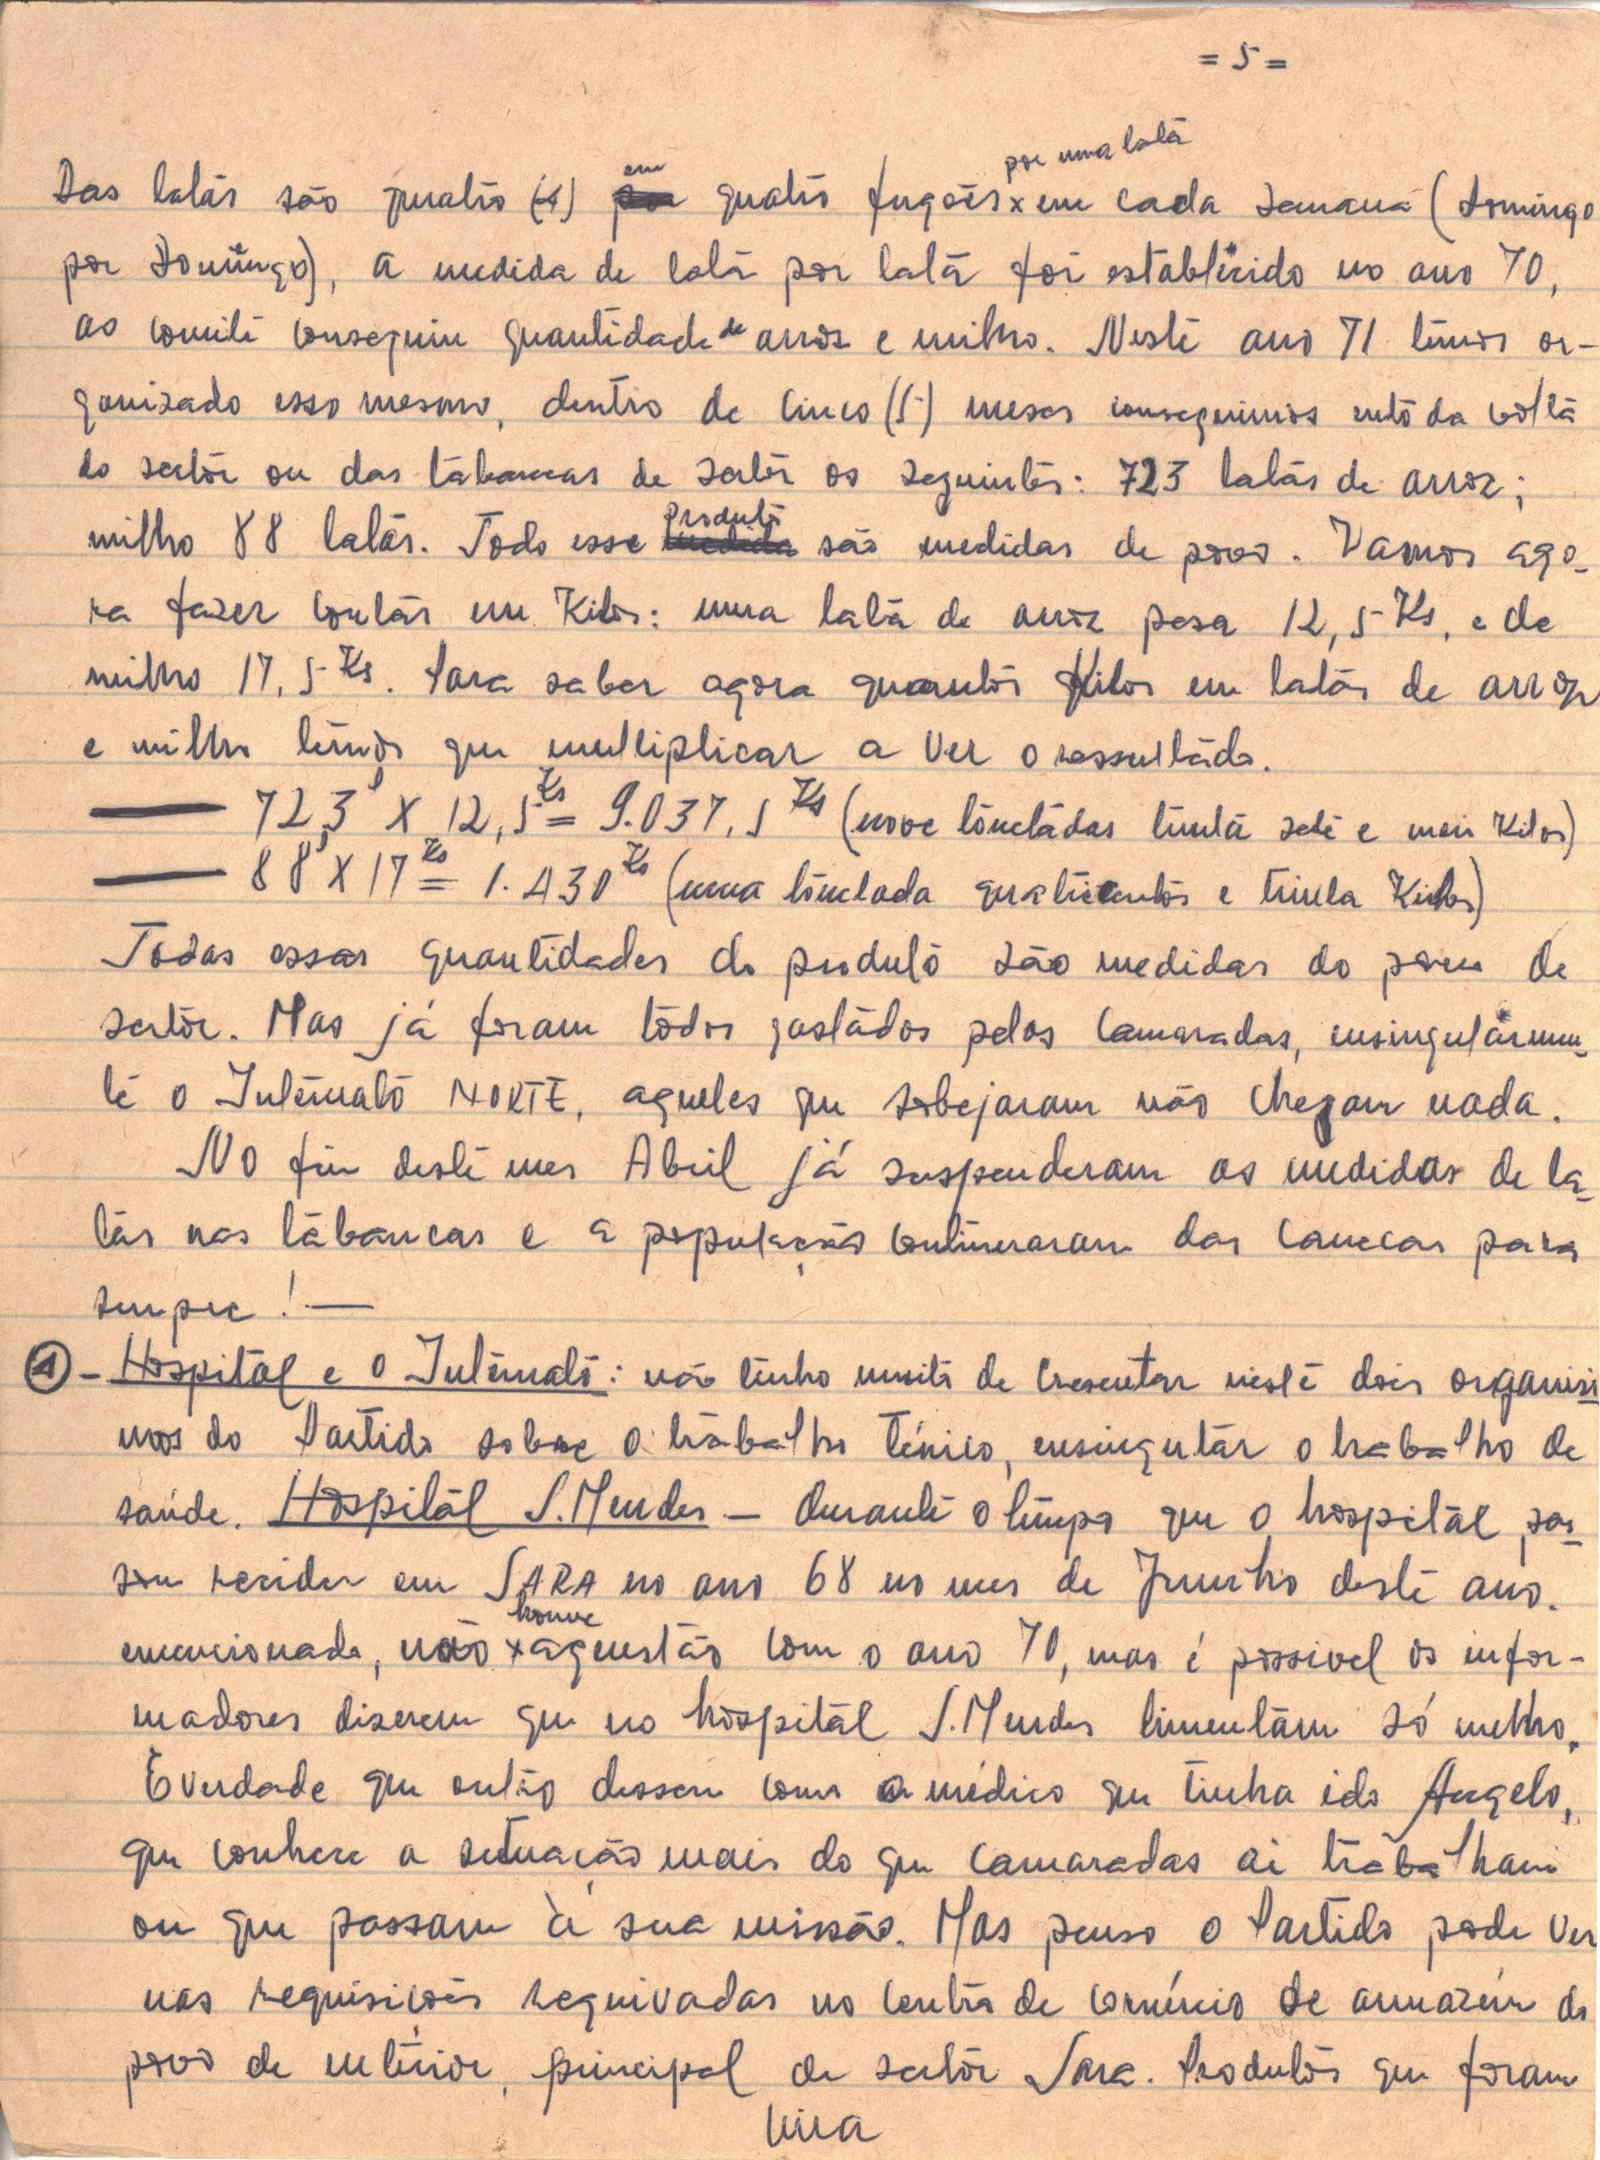 = 5 =
por uma latã
em
Das latãs são quatro (4) quatro fugões x em cada semana (Domingo
por Domingo), a medida de latã por latã foi establecido no ano 70,
ao comité conseguiu quantidade de arroz e milho. Nestè ano 71 temos or-
ganizado esso mesmo, dentro de cinco (5) meses conseguimos volta
do sector ou das tabancas de sector os seguintes: 723 latãs de arroz;
produtõ
milho 88 latãs. Todo esse medida são medidas de povo. Vamos ago-
ra fazer contãs em Kilos: uma latã de arroz pesa 12,5 Ks, e de
milho 17,5 Ks. Para saber agora quantos Kilos em latãs de arroz
e milho temos que multiplicar a ver o ressultado.
— 723 X 12,5 Ks = 9.037,5 Ks (nove tôneladas trinta setè e meii Kilos)
— 88 X 17 Ks = 1.430 Ks (uma tônelada quatrocentos e trinta Kilos)
Todas essas quantidades do produtõ são medidas do povu de
sectõr. Mas já foram tõdos gastãdos pelos camaradas, ensingulãrmen-
tè o Intêrnatõ NORTE, aqueles que sobejaram não chegam nada.
No fim destè mes Abril já suspenderam as medidas de la-
tãs nas tãbancas e a população continuaram das canecas para
sempre ! —
④ - Hospitãl e o Intêrnatõ: não tenho muitõ de crescentar nestè dois organisi
mos do Partido sobre o trãbalho Ténico, ensingulãr o trabalho de
saúde. Hospitãl S. Mendes — durantè o têmpo que o hospitãl pas-
sou residir em SARA no ano 68 no mes de Junnho destè ano.
houve
emencionado, não x aquestão com o ano 70, mas é possivel os infor-
madores dizerem que no hospitãl S. Mendes limentãm só milho.
É verdade que então dessem como o médico que tinha ido Angelo,
que conhece a situação mais do que camaradas ai trãbalham
ou que passam à sua missão. Mas penso o Partido pode ver
nas requisições requivadas no centro de comércio de armazém do
povo de intêrior, principal de sectõr Sara. Produtõs que foram
vira